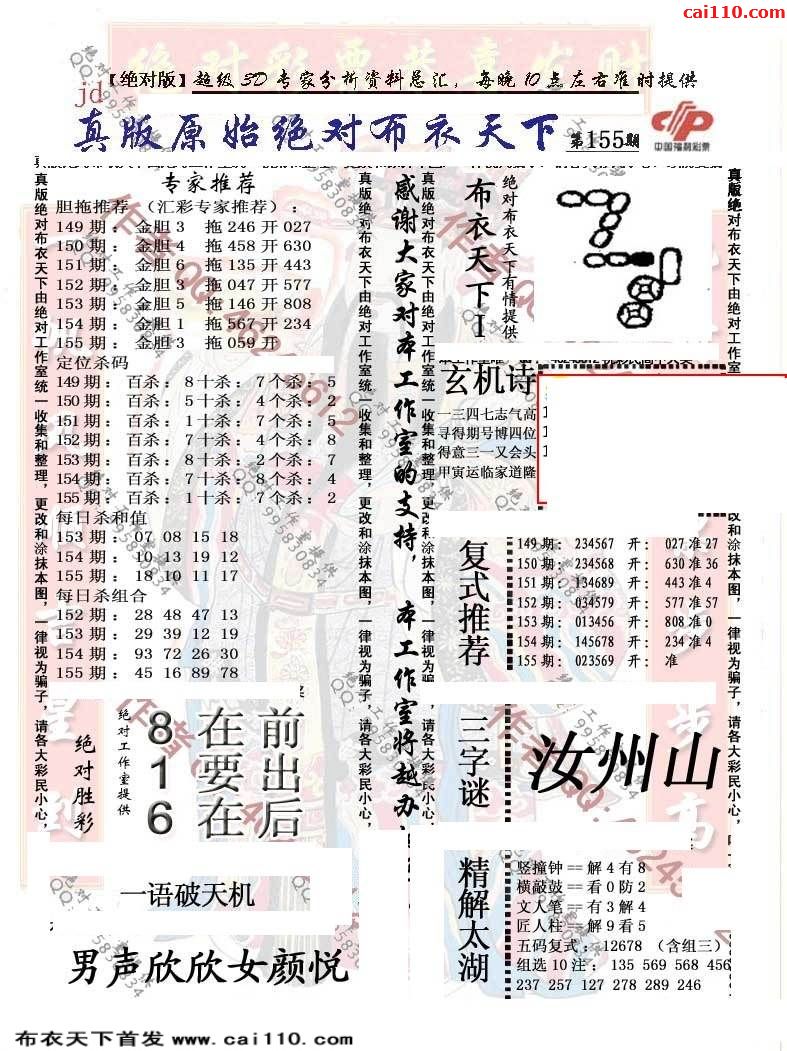 cai110.com
【绝对版】超级3D专家分析资料总汇，每晚10点左右准时提供
jd
真版原始绝对布衣天下
第155期
中国福利彩票
真版绝对布衣天下由绝对工作室统一收集和整理，更改和涂抹本图，一律视为骗子，请各大彩民小心，
专家推荐
胆拖推荐 （汇彩专家推荐）：
149期： 金胆3 拖246开027
150期： 金胆4 拖458开630
151期： 金胆6 拖135开443
152期： 金胆3 拖047开577
153期： 金胆5 拖146开808
154期： 金胆1 拖567开234
155期： 金胆3 拖059开
定位杀码
149期： 百杀：8十杀：7个杀：5
150期： 百杀：5十杀：4个杀：2
151期： 百杀：1十杀：7个杀：5
152期： 百杀：7十杀：4个杀：8
153期： 百杀：8十杀：2个杀：7
154期： 百杀：7十杀：8个杀：4
155期： 百杀：1十杀：7个杀：2
每日杀和值
153期： 07 08 15 18
154期： 10 13 19 12
155期： 18 10 11 17
每日杀组合
152期： 28 48 47 13
153期： 29 39 12 19
154期： 93 72 26 30
155期： 45 16 89 78
真版绝对布衣天下由绝对工作室统一收集和整理，更改和涂抹本图，一律视为骗子，请各大彩民小心，
感谢大家对本工作室的支持，本工作室将越办
真版绝对布衣天下由绝对工作室统一收集和整理，更改和涂抹本图，一律视为骗子，请各大彩民小心，
布衣天下I
绝对布衣天下有情提供
玄机诗
一三四七志气高
寻得期号博四位
得意三一又会头
甲寅运临家道隆
复式推荐
149期： 234567 开： 027准27
150期： 234568 开： 630准36
151期： 134689 开： 443准4
152期： 034579 开： 577准57
153期： 013456 开： 808准0
154期： 145678 开： 234准4
155期： 023569 开： 准
真版绝对布衣天下由绝对工作室
改和涂抹本图，一律视为骗子，请各大彩民小心，
绝对胜彩
绝对工作室提供
8在前
1要出
6在后
三字谜
汝州山
一语破天机
男声欣欣女颜悦
精解太湖
竖撞钟==解4有8
横敲鼓==看0防2
文人笔==有3解4
匠人柱==解9看5
五码复式：12678 （含组三）
组选10注： 135 569 568 456
237 257 127 278 289 246
布衣天下首发 www.cai110.com